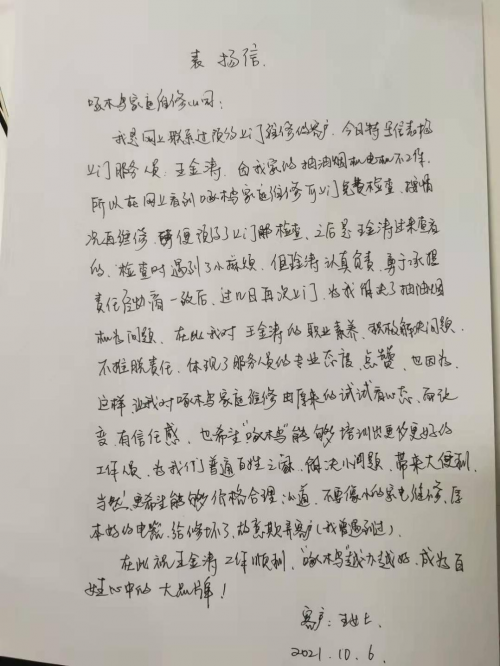 表扬信
啄木鸟家庭维修公司:
我是网上联系过预约上门维修的客户,今日特呈信表扬
上门服务人员:王金涛,因我家的抽油烟机电机不工作,
所以在网上看到啄木鸟家庭维修可上门免费检查,按情
况再维修,便预约了上门检查,之后是王金涛过来查看
的,检查时遇到了小麻烦,但金涛认真负责,勇于承担
责任经协商一致后,过几日再次上门,为我解决了抽油烟
机的问题,在此我对王金涛的职业素养,积极解决问题,
不推脱责任,体现了服务人员的专业态度,点赞,也因为
这样让我对啄木鸟家庭维修由原来的试试看心态,而改
变有信任感,也希望"啄木鸟"能够培训出更多更好的
工作人员,为我们普通百姓之家,解决小问题,带来大便利,
当然,更希望能够价格合理公道,不要像小的家电维修,原
本好的电器,给修坏了,故意欺弄客户(我曾遇到过)
在此祝王金涛工作顺利,"啄木鸟"越办越好,成为百
姓心中的大品牌!
客户:王女士
2021.10.6.